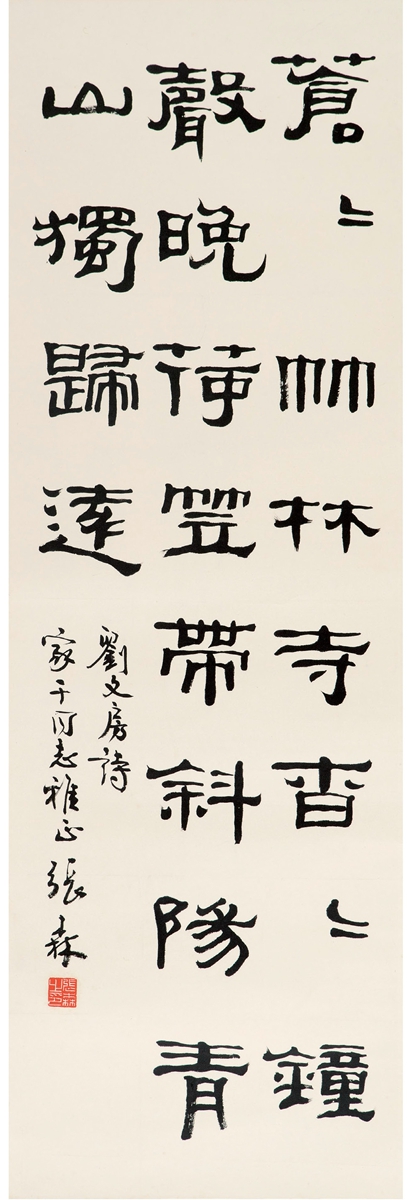 蒼〻竹林寺杳〻鐘
聲晚荷笠帶斜陽青
山獨歸遠
劉文房詩
家千同志雅正 張森
張森之印